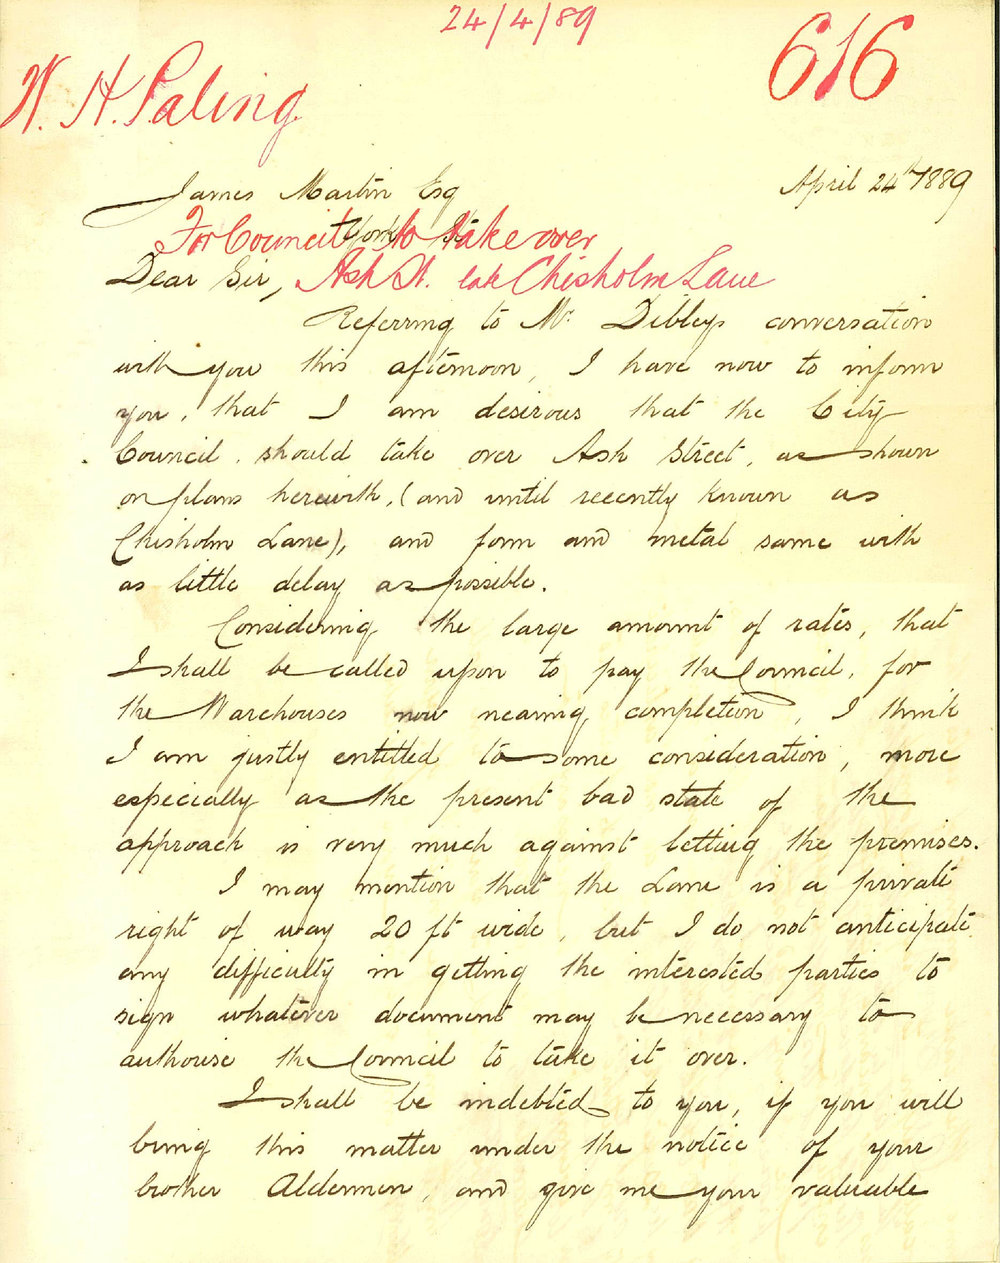 24/4/89
616
W. H. Paling
April 24th 1889
James Martin Esq
York St
For Council to take over
Ash St. late Chisholm Lane
Dear Sir,
Referring to Mr. Dibleys conversation
with you this afternoon, I have now to inform
you, that I am desirous that the City
Council. should take over Ash Street, as shown
on plans herewith, (and until recently known as
Chisholm Lane), and form and metal same with
as little delay as possible.
Considering the large amount of rates, that
I shall be called upon to pay the Council, for
the Warehouses now nearing completion, I think
I am justly entitled to some consideration, more
especially as the present bad state of the
approach is very much against letting the premises.
I may mention that the Lane is a private
right of way 20 ft wide, but I do not anticipate
any difficulty in getting the interested parties to
sign whatever document may be necessary to
authorise the Council to take it over.
I shall be indebted to you, if you will
bring this matter under the notice of your
brother Aldermen, and give me your valuable